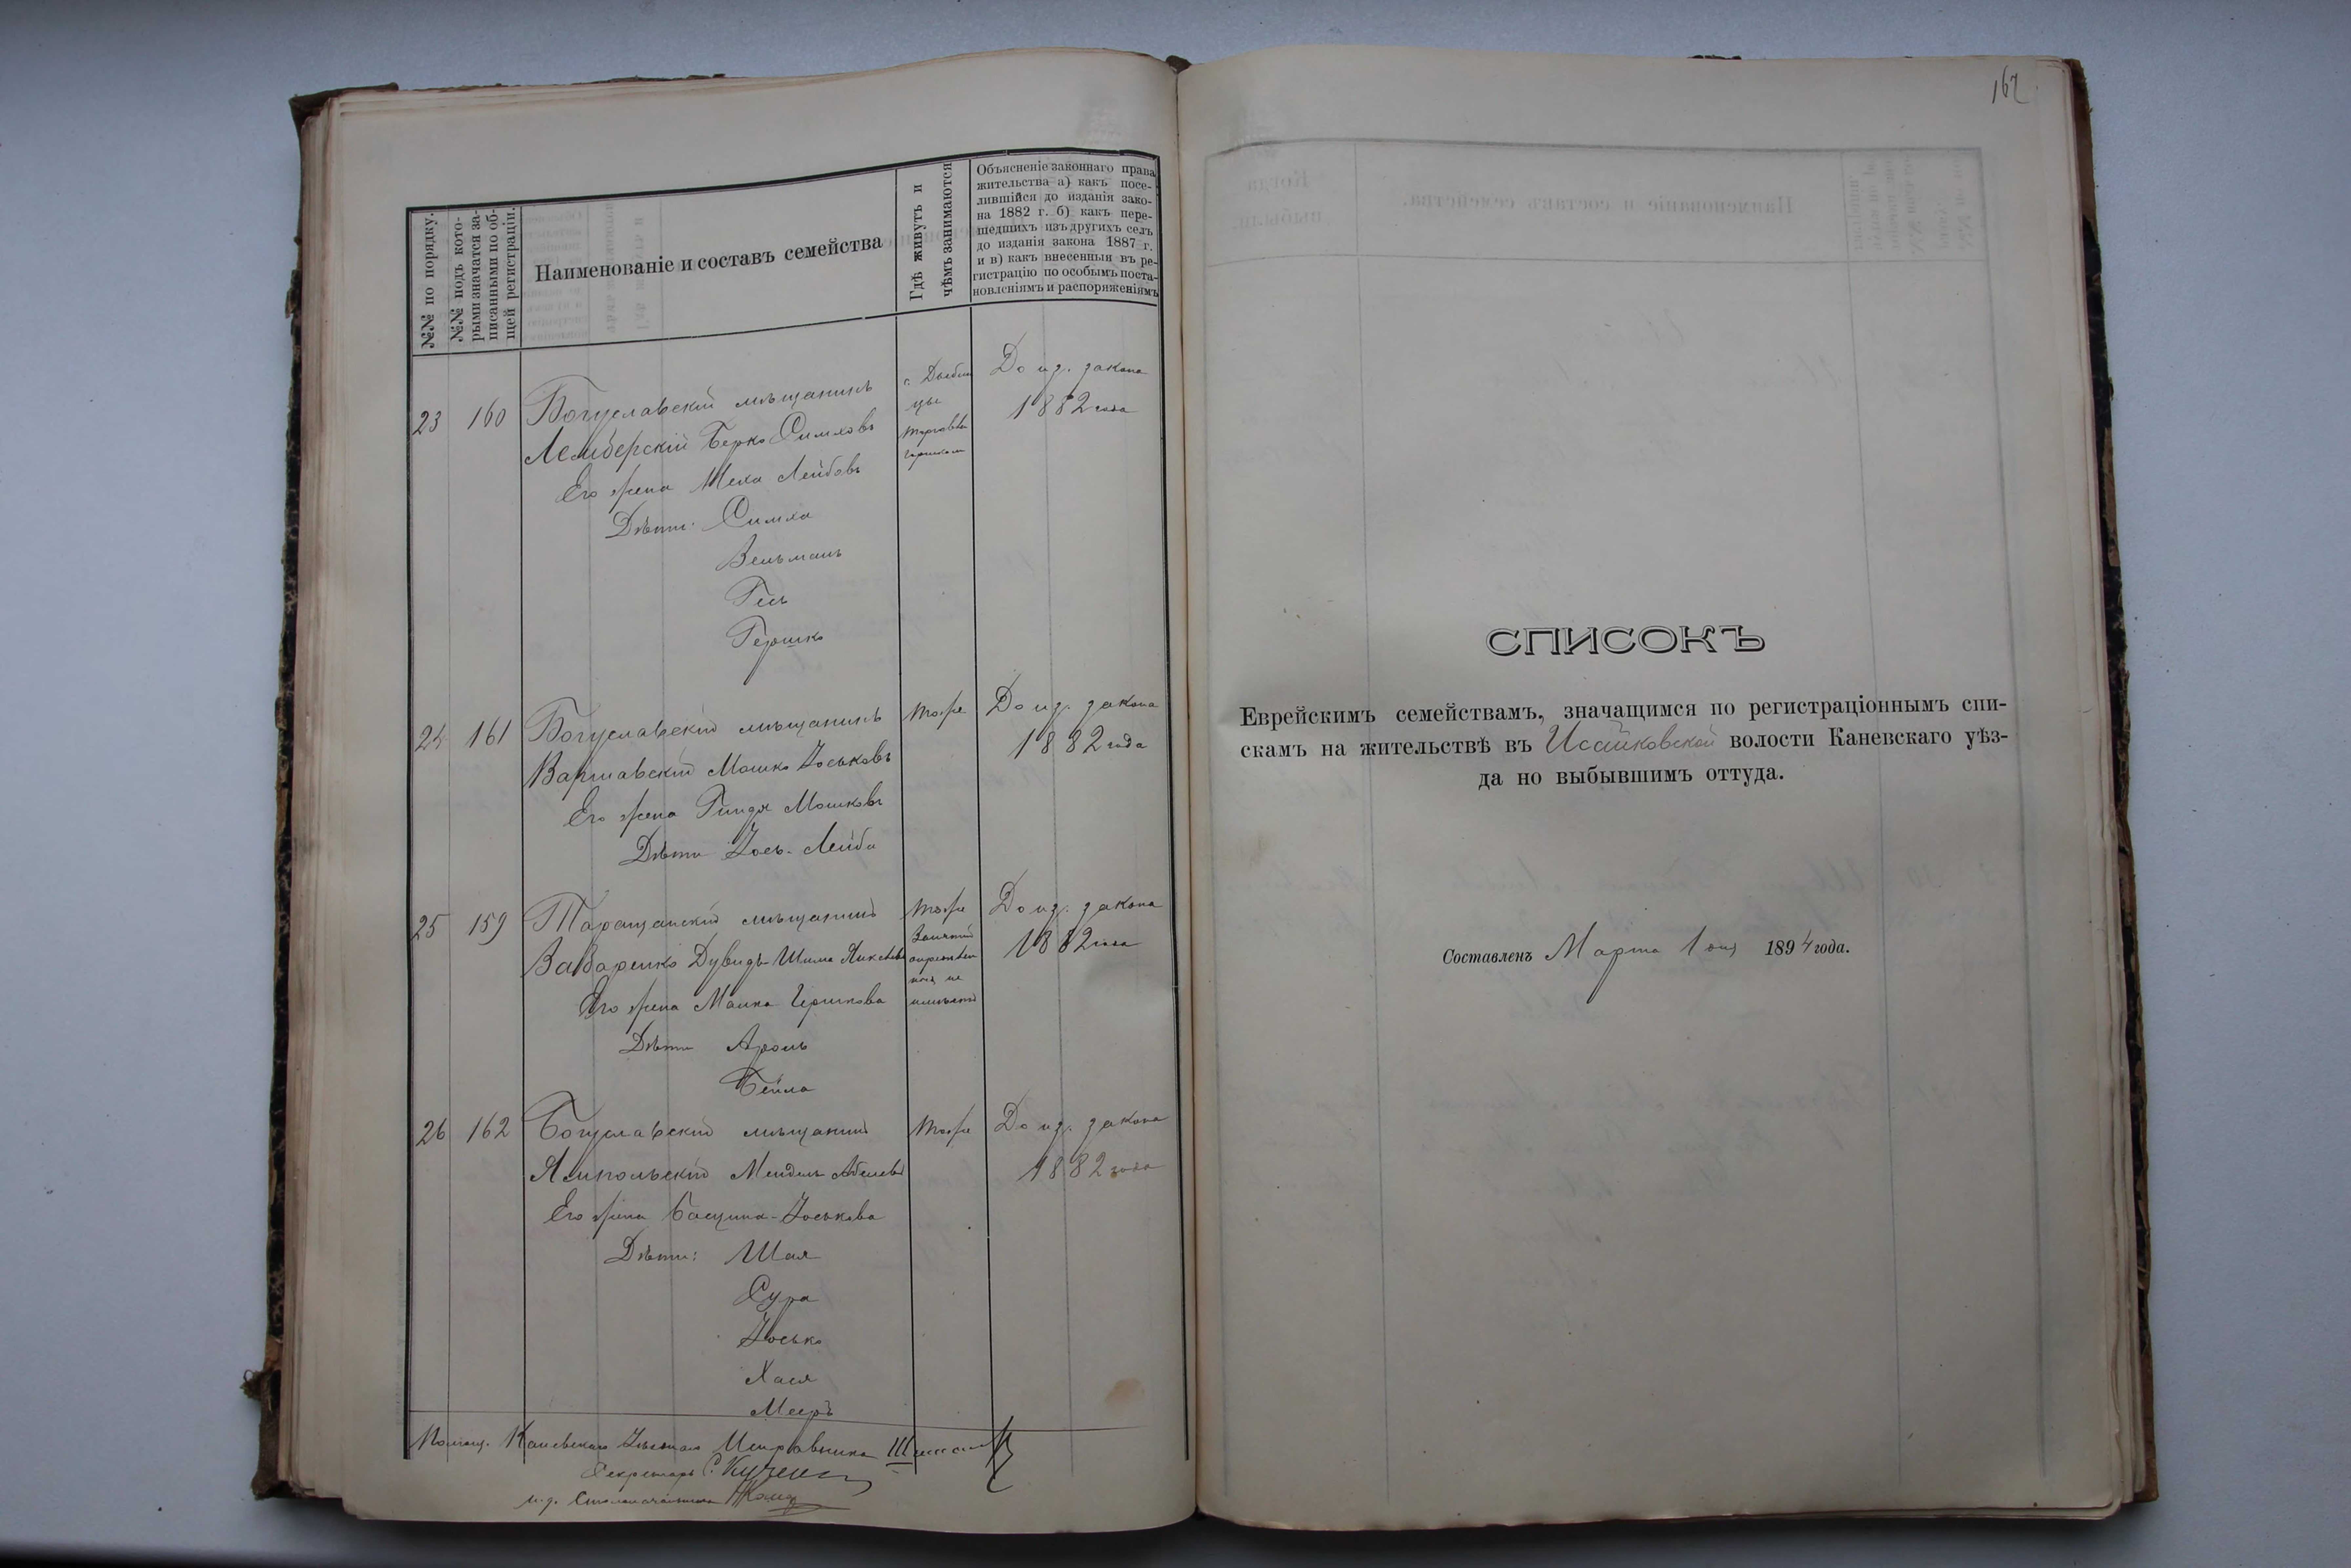 №№ по порядку.
№№ подъ кото-
рыми значатся за-
писанными по об-
щей регистраціи.
Наименованіе и составъ семейства
Гдѣ живутъ и
чѣмъ занимаются
Объясненіе законнаго права
жительства а) какъ посе-
лившійся до изданія зако-
на 1882 г. б) какъ пере-
шедшихъ изъ другихъ селъ
до изданія закона 1887 г.
и в) какъ внесенныя въ ре-
гистрацію по особымъ поста-
новленіямъ и распоряженіямъ
23 160 Богуславскій мѣщанинъ
Лемберскій Берко Симховъ
Его жена Меха Лейбовъ
Дѣти: Симха
Вельманъ
Гершко
с.
цы
До изд. закона
1882 года
24 161 Богуславскій мѣщанинъ
Варшавскій Мошко Іоськовъ
Его жена Гиндя Мошковъ
Дѣти Іось-Лейба
тоже
До изд. закона
1882 года
25 159 Таращанскій мѣщанинъ
Дувидъ-Шима
Его жена Малка Гершкова
Дѣти Аронъ
Бейла
тоже
Занятій
опредѣлен
ныхъ не
До изд. закона
1882 года
26 162 Богуславскій мѣщанинъ
Ямпольскій Мендель Абелевъ
Его жена Басщина-Іоськова
Дѣти: Шая
Сура
Іосько
Хася
Мееръ
тоже
До изд. закона
1882 года
Помощ. Каневскаго Уѣзднаго Исправника
Секретарь С.
и. д. Столоначальника
167
СПИСОКЪ
Еврейскимъ семействамъ, значащимся по регистраціоннымъ спи-
скамъ на жительствѣ въ Исайковской волости Каневскаго уѣз-
да но выбывшимъ оттуда.
Составленъ Марта 1 дня 1894 года.